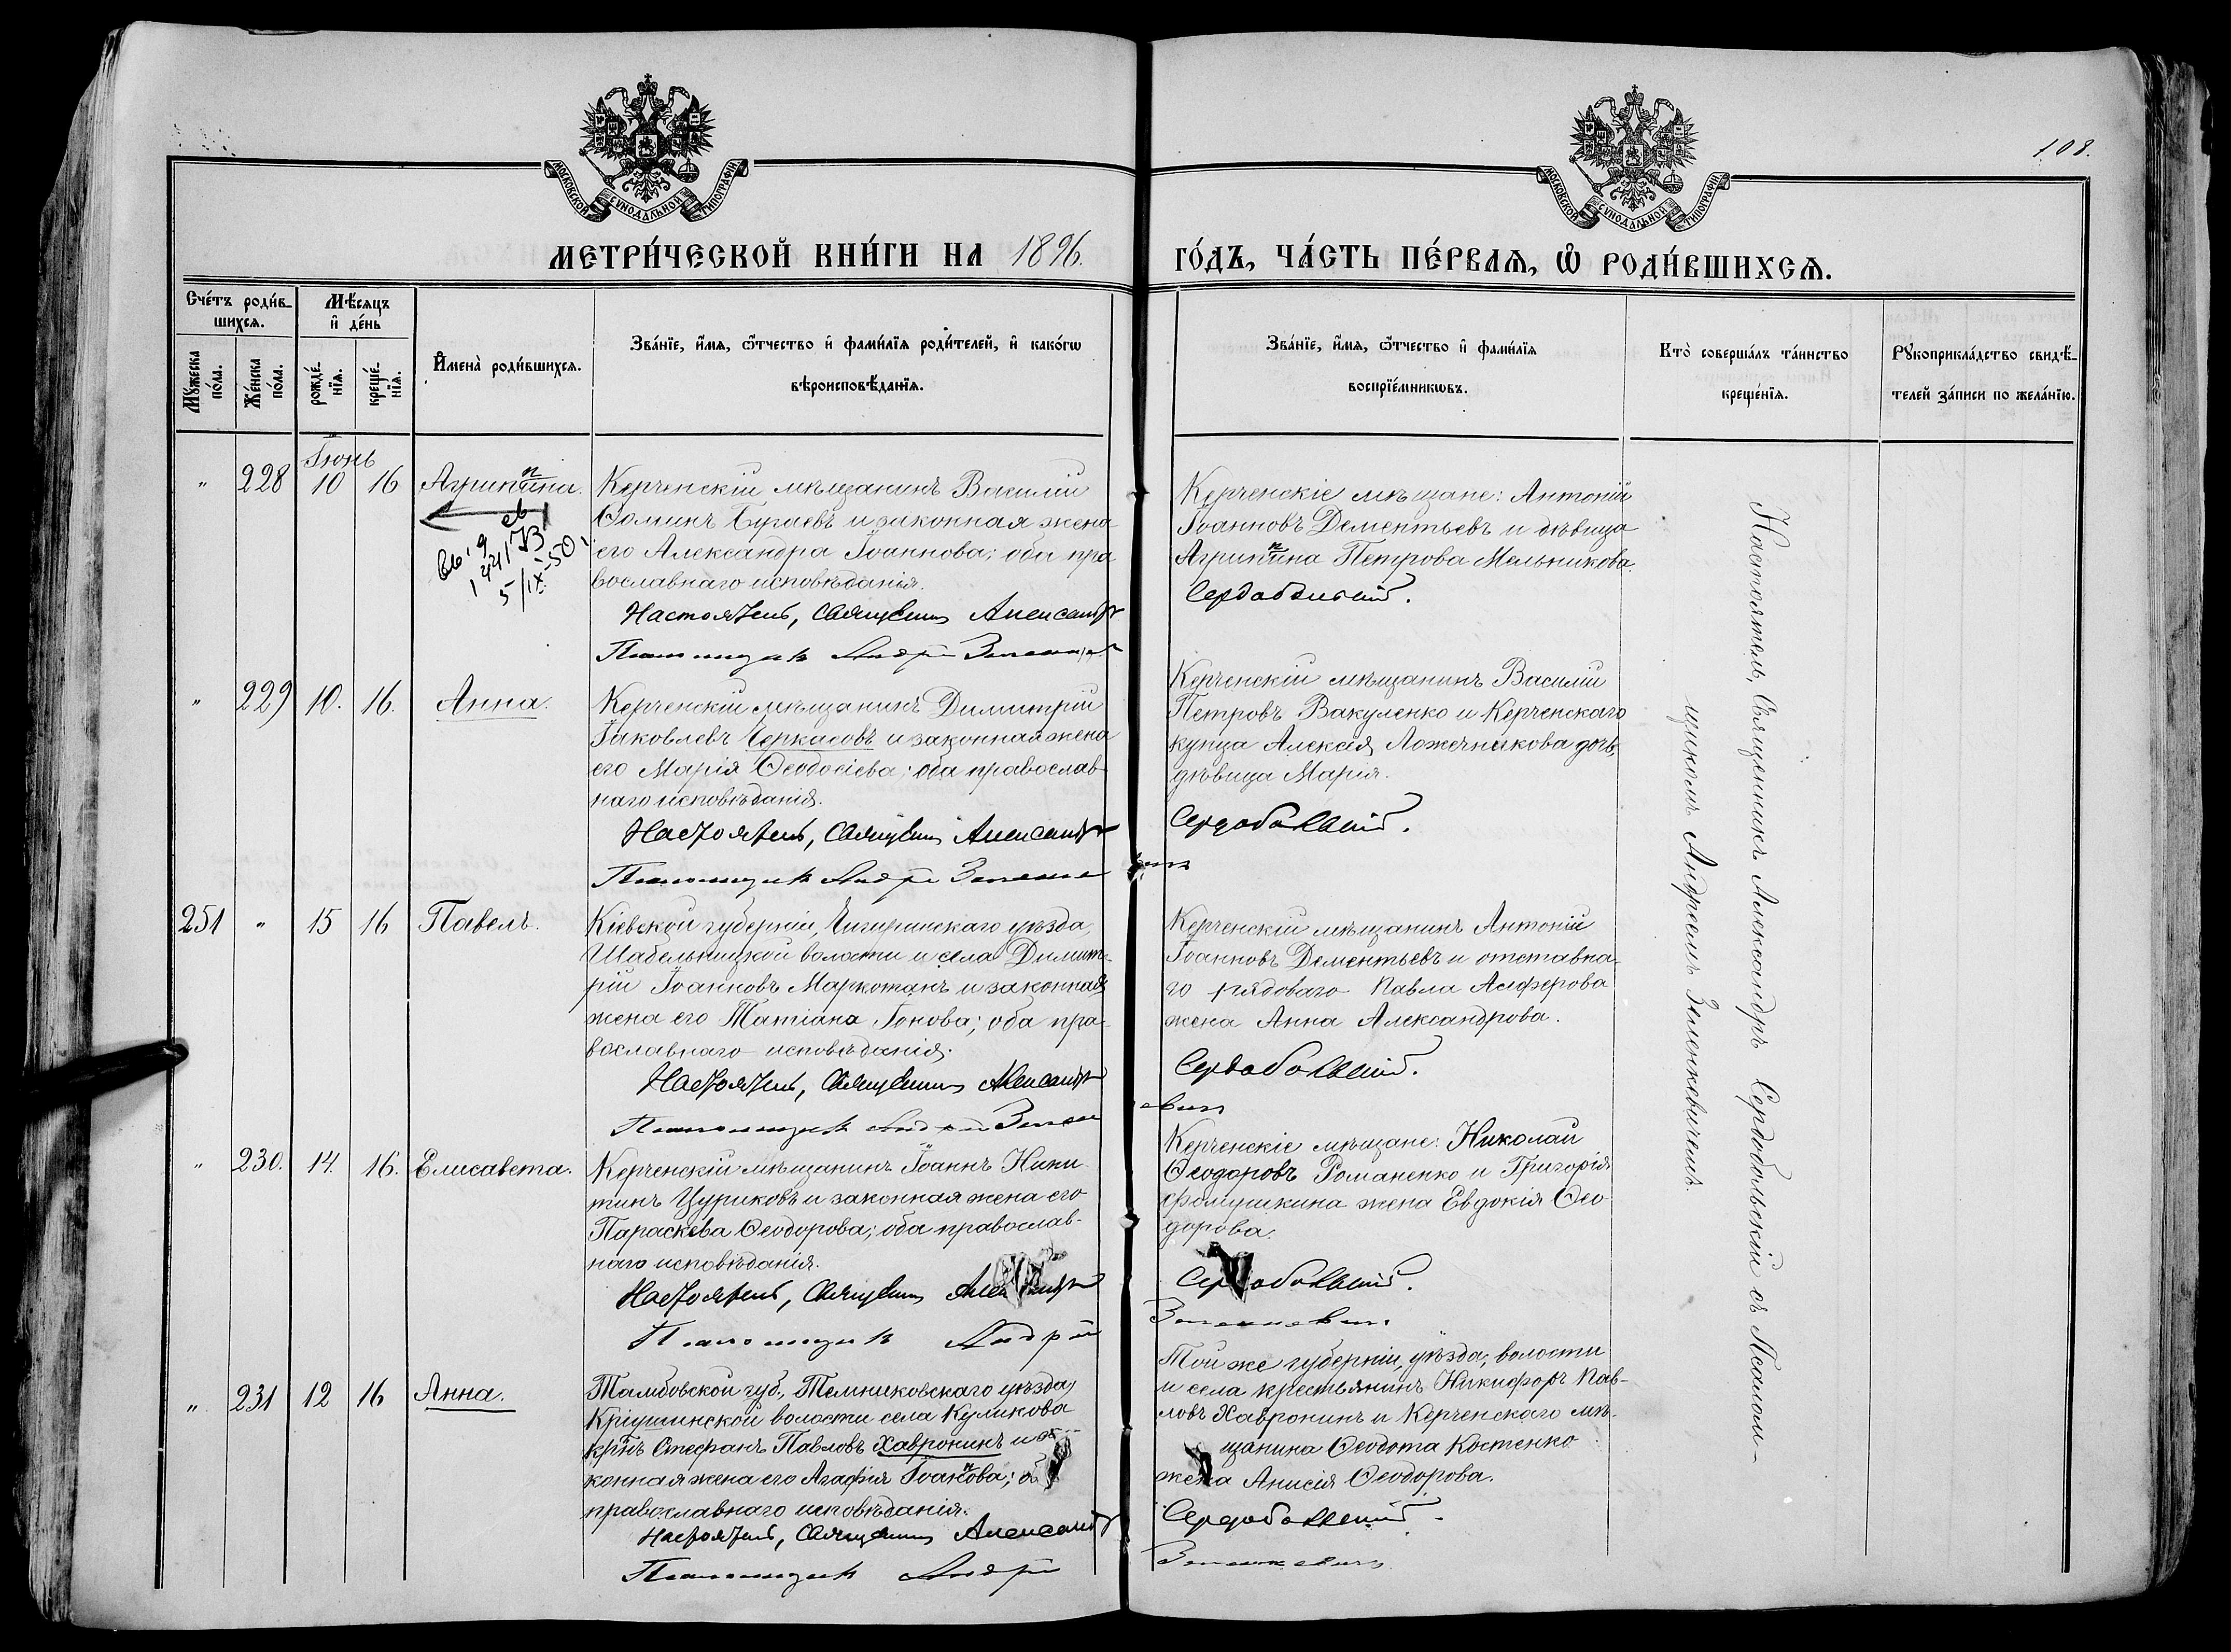 108.
МОСКОВСКОЙ СѴНОДАЛЬНОЙ ТИПОГРАФІИ
МОСКОВСКОЙ СѴНОДАЛЬНОЙ ТИПОГРАФІИ
МЕТРИ́ЧЕСКОЙ КНИ́ГИ НА 1896.
ГО́ДЪ, ЧА́СТЬ ПЕ́РВАѦ, Ѡ҆ РОДИ́ВШИХСѦ.
Сче́тъ роди́в-
шихсѧ.
Мѣ́сѧцъ
и҆ де́нь
Мꙋ́жеска
по́ла.
Же́нска
по́ла.
рожде́-
нїѧ.
креще́-
нїѧ.
И҆мена̀ роди́вшихсѧ.
Зва́нїе, и҆́мѧ, ѻ҆́тчество и҆ фами́лїѧ роди́телей, и҆ како́гѡ
вѣроисповѣ́данїѧ.
Зва́нїе, и҆́мѧ, ѻ҆́тчество и҆ фами́лїѧ
воспрїе́мникѡвъ.
Кто̀ соверша́лъ та́инство
креще́нїѧ.
Рꙋкоприкла́дство свидѣ́-
телей за́писи по жела́нїю.
Іюнь
" 228 10 16 Агрипина.
п
Керченскій мѣщанинъ Василій
Ѳоминъ Бугаевъ и законная жена
его Александра Іоаннова; оба пра-
вославнаго исповѣданія.
Настоятель, Священникъ Александръ
Псаломщикъ Андрей Зеленкевичъ
5/IX-50
Керченскіе мѣщане: Антоній
Іоанновъ Дементьевъ и дѣвица
Агрипина Петрова Мельникова.
Сердобольскій.
" 229 10. 16. Анна.
Керченскій мѣщанинъ Димитрій
Іаковлевъ Черкасовъ и законная жена
его Марія Ѳеодосіева; оба православ-
наго исповѣданія.
Настоятель, Священникъ Александръ
Псаломщикъ Андрей Зеленкевичъ
Керченскій мѣщанинъ Василій
Петровъ Вакуленко и Керченскаго
купца Алексія Ложечникова дочь,
дѣвица Марія.
Сердобольскій.
251 " 15 16 Павелъ.
Кіевской губерніи, Чигиринскаго уѣзда,
Шабельницкой волости и села Димит-
рій Іоанновъ Маркотанъ и законная
жена его Татіана Іонова; оба пра-
вославнаго исповѣданія.
Настоятель, Священникъ Александръ
Псаломщикъ Андрей Зеленкевичъ
Керченскій мѣщанинъ Антоній
Іоанновъ Дементьевъ и отставна-
го рядоваго Павла Алферова
жена Анна Александрова.
Сердобольскій.
" 230. 14. 16. Елисавета.
Керченскій мѣщанинъ Іоаннъ Ники-
тинъ Цуриковъ и законная жена его
Параскева Ѳеодорова; оба православ-
наго исповѣданія.
Настоятель, Священникъ Александръ
Псаломщикъ Андрей
Керченскіе мѣщане: Николай
Ѳеодоровъ Романенко и Григорія
Фомушкина жена Евдокія Ѳео-
дорова.
Сердобольскій.
Зеленкевичъ
" 231 12 16 Анна.
Тамбовской губ., Темниковскаго уѣзда,
Кріушинской волости села Куликова
кр-нъ Стефанъ Павловъ Хавронинъ и за-
конная жена его Агафія Іоаннова; оба
православнаго исповѣданія.
Настоятель, Священникъ Александръ
Псаломщикъ Андрей
Той же губерніи, уѣзда, волости
и села крестьянинъ Никифоръ Пав-
ловъ Хавронинъ и Керченскаго мѣ-
щанина Ѳеодота Костенко
жена Анисія Ѳеодорова.
Сердобольскій.
Зеленкевичъ
Настоятель, Священникъ Александръ Сердобольскій съ Псалом-
щикомъ Андреемъ Зеленкевичемъ.